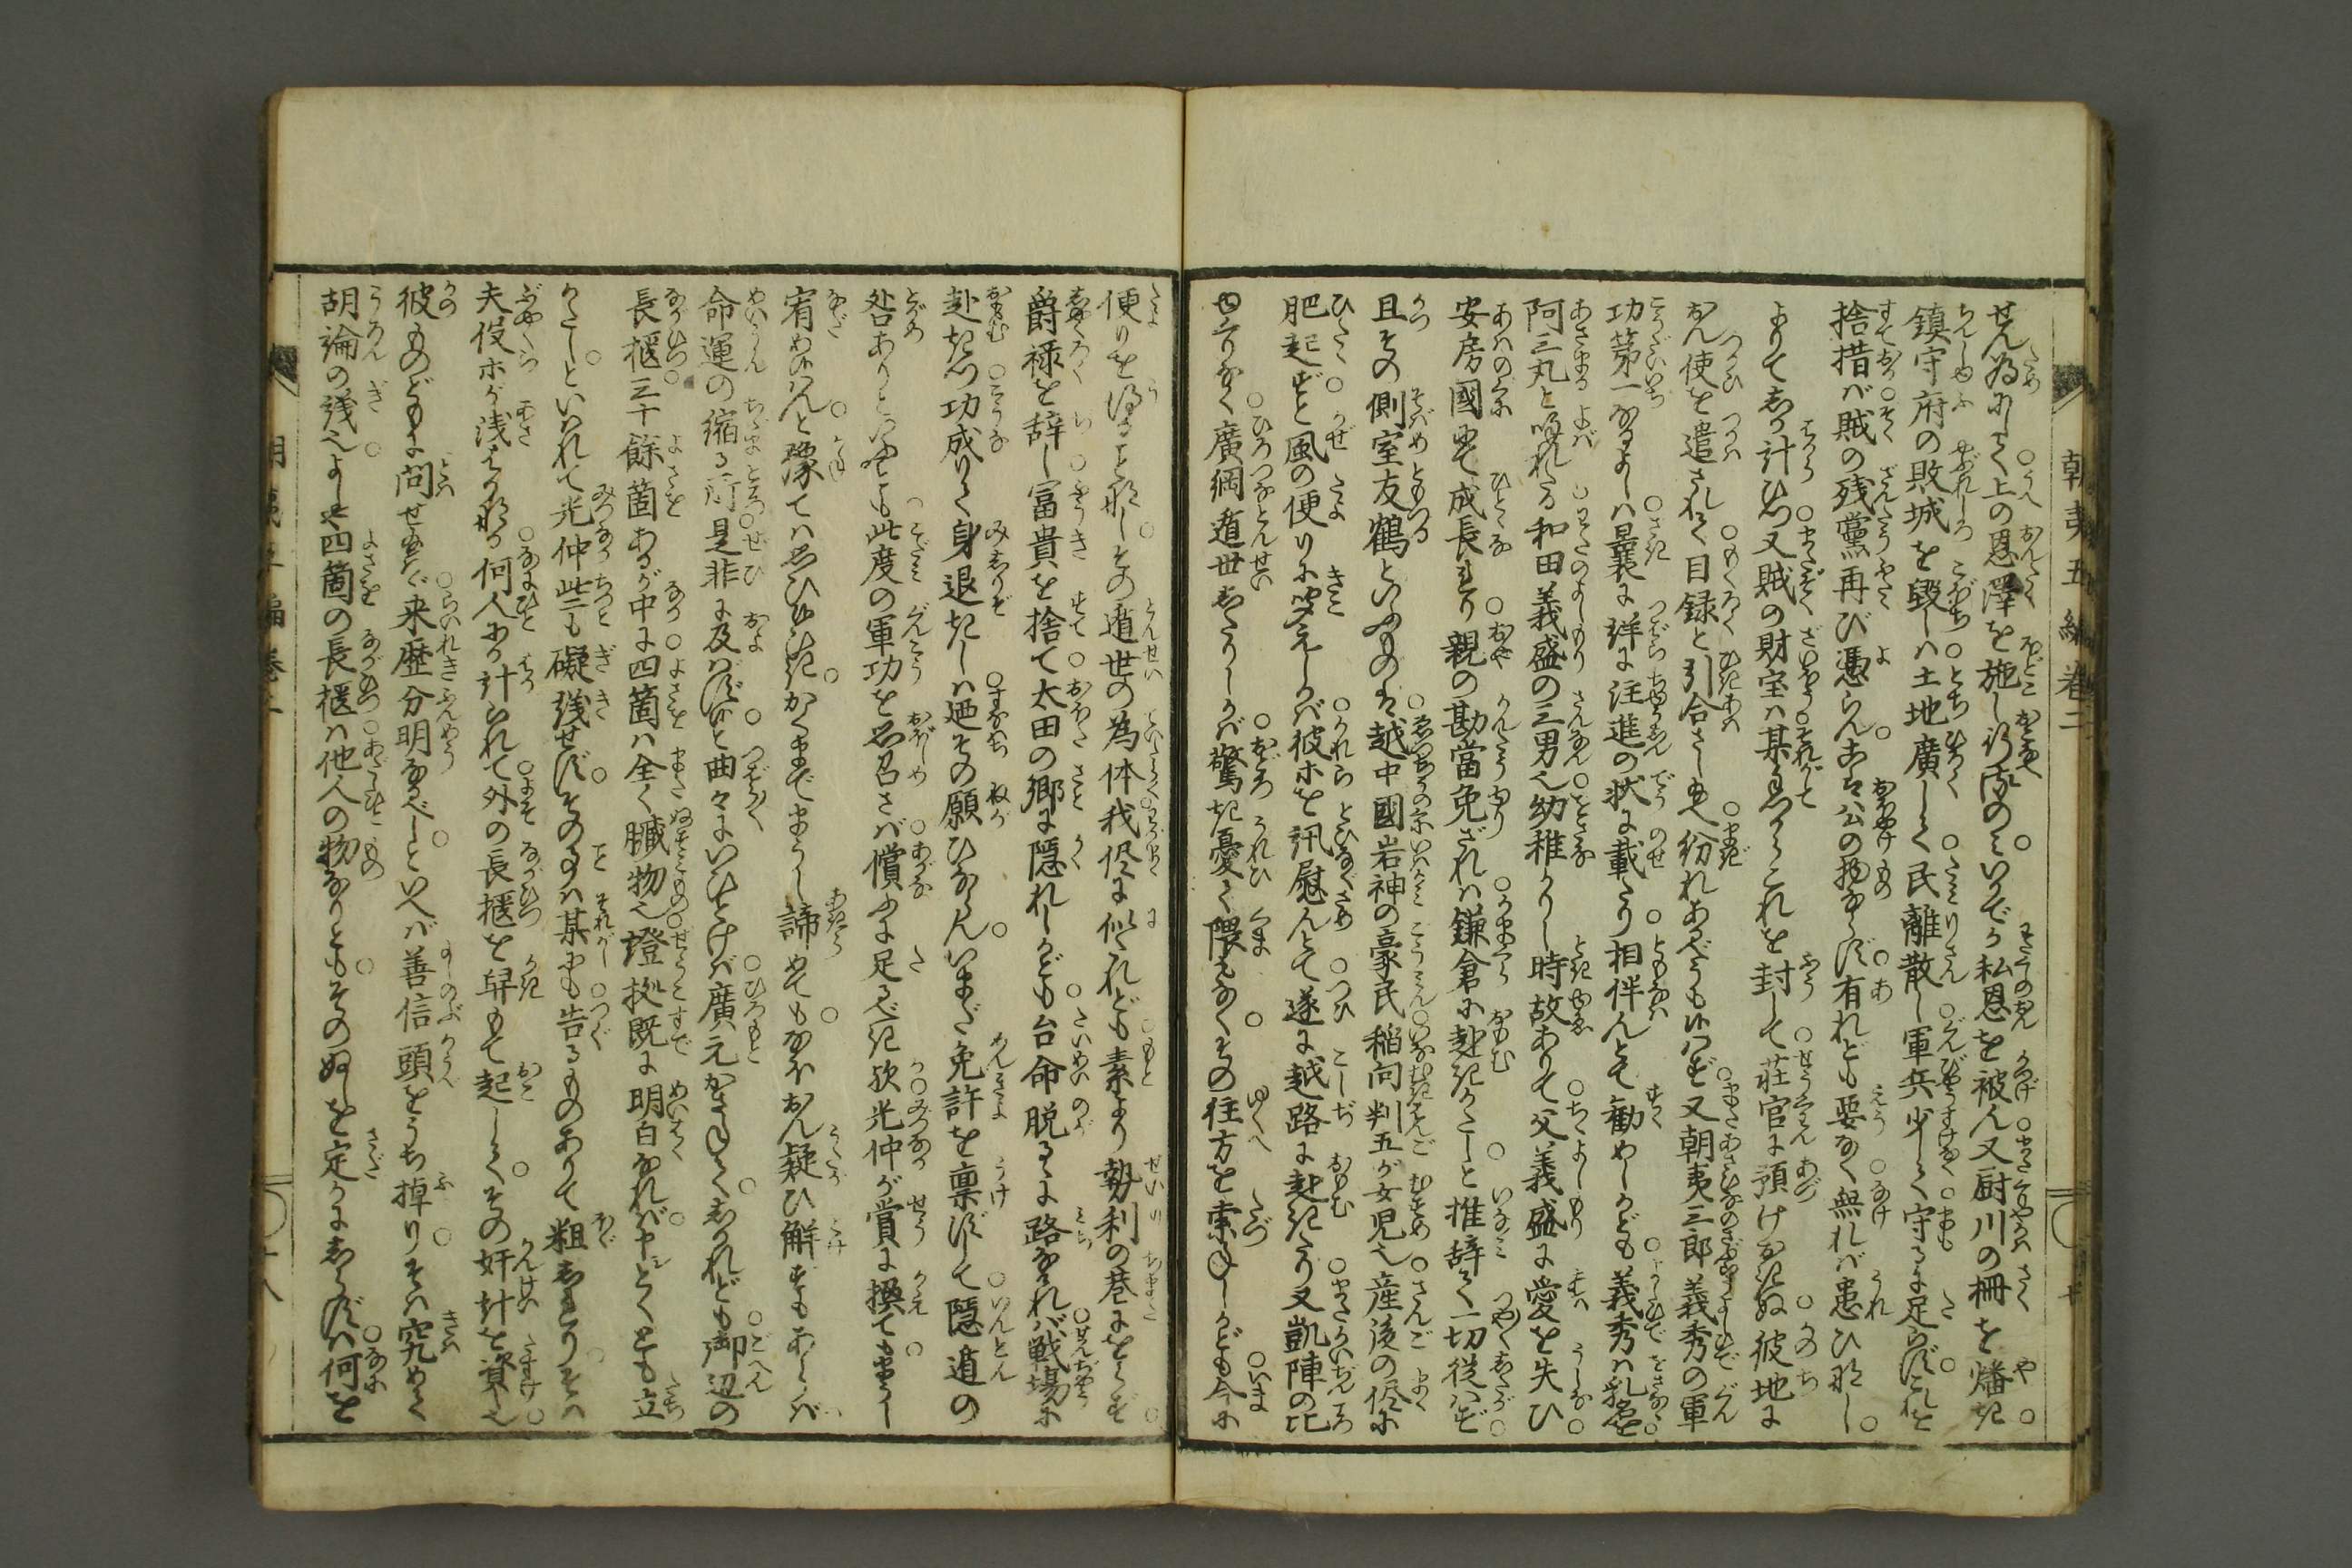 朝夷五編巻二
せん為にして上の恩澤を施し行ふのミいかでか私恩を被ん又厨川の柵を燔き
鎮守府の敗城を毀しハ土地廣して民離散し軍兵少して守るに足らずこれを
捨措バ賊の残黨再び憑らんこハ公の物ならず有れども要なく無れバ患ひなし
よりてしか計ひつ又賊の財宝ハ某ミづからこれを封して荘官に預けおきぬ彼地に
おん使を遣されて目録と引合さしめ給へ紛れあるべうも候はず又朝夷三郎義秀の軍
功第一なるよしハ曩に詳に注進の状に載たり相伴んとて勧めしかども義秀ハ乳名を
阿三丸と喚れたる和田義盛の三男也幼稚かりし時故ありて父義盛に愛を失ひ
安房國にて成長たり親の勘當免ざれハ鎌倉に赴きがたしと推辞て一切従はず
且その側室友鶴といふものハ越中國岩神の豪民稲向判五が女児也産後の侭に
肥起ずと風の便りに聞えしかバ彼ホを訊慰んとて遂に越路に赴きたり又凱陣の比
廣綱遁世したりしかバ驚き憂て隈もなくその往方を索ねしかども今に
便りを得ることなしその遁世の為体我侭に似たれども素より勢利の巷にをらず
爵禄を辞し冨貴を捨て太田の郷に隠れしかども台命脱るゝに路なけれバ戦場に
赴きつ功成りて身退きしハ廼その願ひならんいまだ免許を禀ずして隠遁の
咎ありといふとも此度の軍功を思召さバ償ふに足るべき歟光仲が賞に換ても申し
宥め候はんと豫てハ思ひ候ひきかくまでまうし諦めてもなほおん疑ひ解ずもあらバ
命運の縮る所是非に及バずと曲々にいひとけバ廣元かさねてしかれども御辺の
長櫃三十餘箇あるが中に四箇ハ全く贓物也證拠既に明白なれバとくとも立
がたしといはれて光仲些も礙議せずその事ハ某にも告るものありて粗しりたりそハ
夫役ホが浅はかなる何人にか計られて外の長櫃を舁もて起しくその奸計を資し也
彼ものどもに問せ給ハゞ来歴分明なるべしといへバ善信頭をうち掉りそハ究めて
胡論の議也よしや四箇の長櫃ハ他人の物なりともそのぬしを定かにしらずハ何を